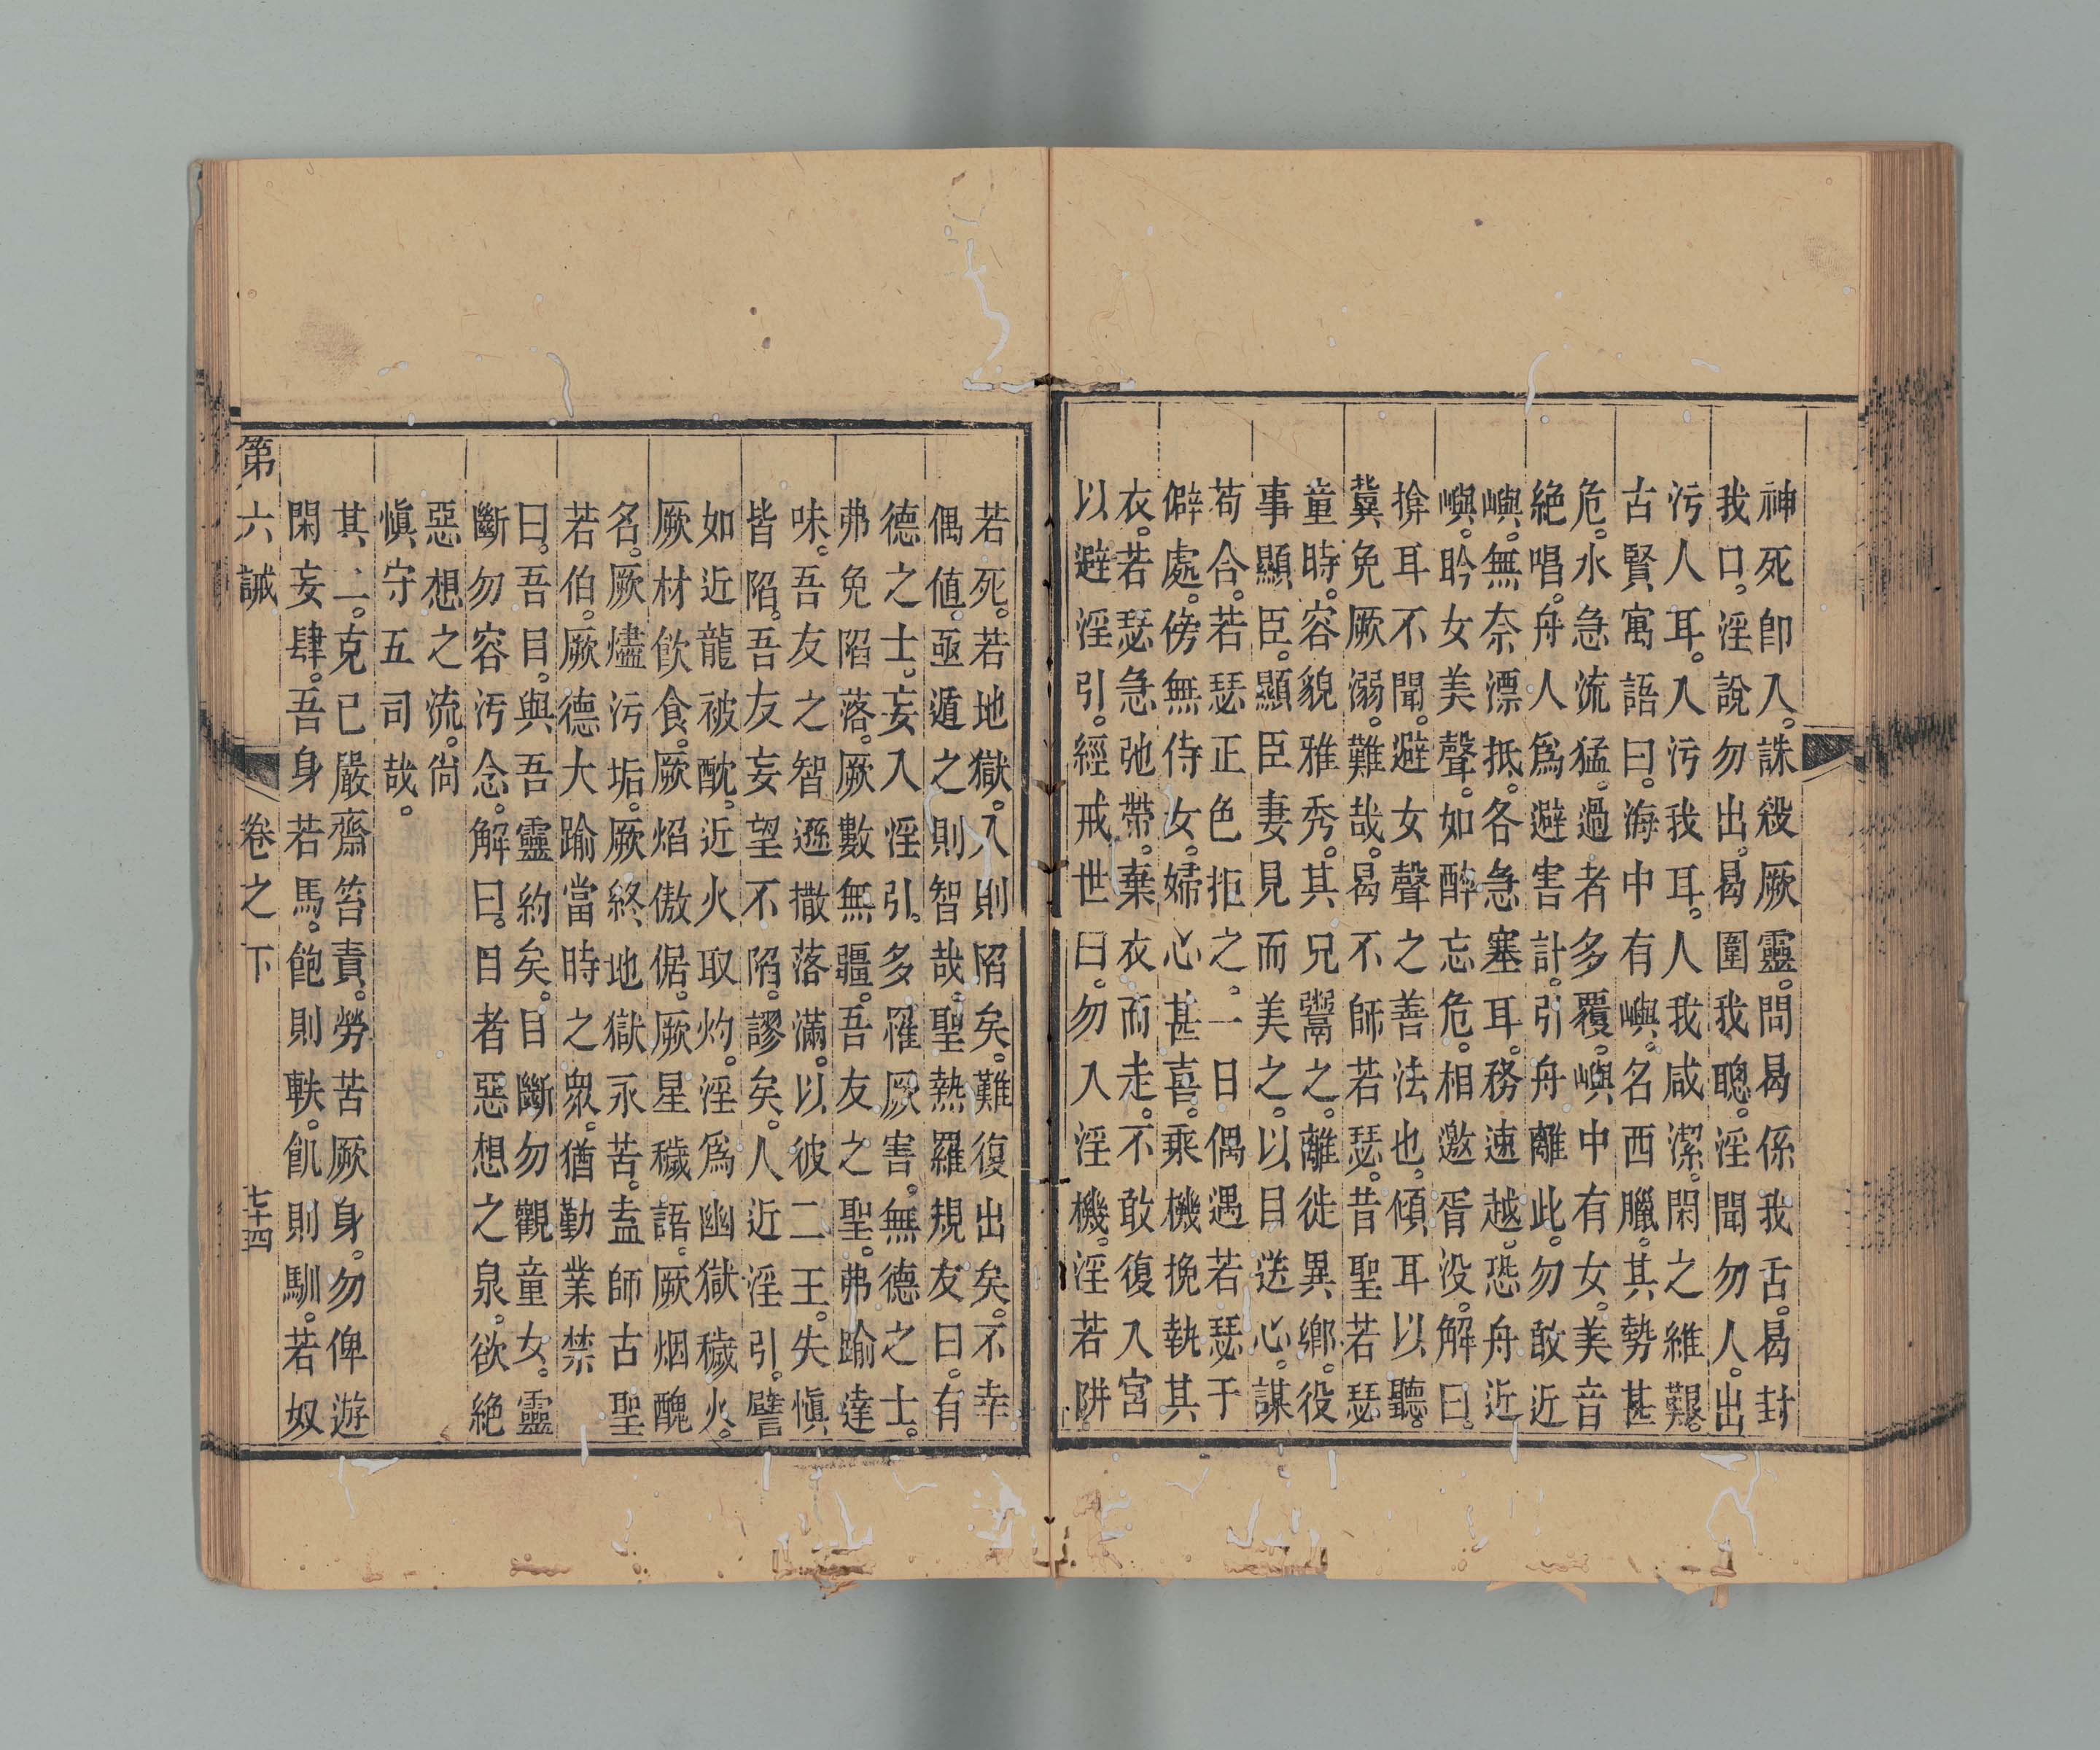 神死卽入。誅殺厥靈。問曷係我舌。曷封
我口。淫說勿出。曷圍我聰。淫聞勿人。出
污人耳。入污我耳。人我咸潔。閑之維艱。
古賢寓語曰。海中有嶼。名西臘。其勢甚
危。水急流猛。過者多覆。嶼中有女。美音
絕唱。舟人爲避害計。引舟離此。勿敢近
嶼。無奈漂抵。各急塞耳。務速越。恐舟近
嶼。聆女美聲。如醉忘危。相邀胥没。解曰。
揜耳不聞。避女聲之善法也。傾耳以聽。
冀免厥溺。難哉。曷不師若瑟。昔聖若瑟
童時。容貌雅秀。其兄鬻之。離徙異鄉。役
事顯臣。顯臣妻見而美之。以目送心。謀
苟合。若瑟正色拒之。一日偶遇若瑟于
僻處。傍無侍女。婦心甚喜。乘機挽執其
衣。若瑟急弛帶。棄衣而走。不敢復入宮
以避淫引。經戒世曰。勿入淫機。淫若阱
若死。若地獄。入則陷矣。難復出矣。不幸
偶值。亟遁之則智哉。聖熱羅規友曰。有
德之士。妄入淫引。多罹厥害。無德之士。
弗免陷落。厥數無疆。吾友之聖。弗踰達
味。吾友之智。遜撒落滿。以彼二王。失愼
皆陷。吾友妄望不陷。謬矣。人近淫引。譬
如近龍被酖。近火取灼。淫爲幽獄穢火。
厥材飮食。厥焰傲倨。厥星穢語。厥烟醜
名。厥燼污垢。厥終地獄永苦。盍師古聖
若伯。厥德大踰當時之衆。猶勤業禁
曰。吾目。與吾靈約矣。目斷勿觀童女。靈
斷勿容汚念。解曰。目者惡想之泉。欲絕
惡想之流。尙
愼守五司哉。
其二。克已嚴齋笞責。勞苦厥身。勿俾遊
閑妄肆。吾身若馬。飽則軼。飢則馴。若奴
第六誡 卷之下 七十四